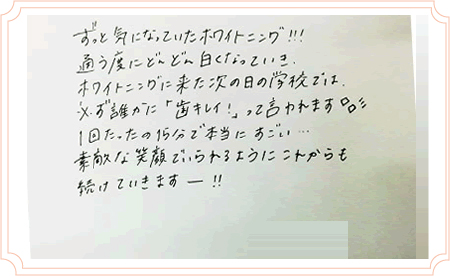 ずっと気になっていたホワイトニング!!!
通う度にどんどん白くなっていき、
ホワイトニングに来た次の日の学校では、
必ず誰かに「歯キレイ!」って言われます
1回たったの15分で本当にすごい…
素敵な笑顔でいられるようにこれからも
続けていきますー!!